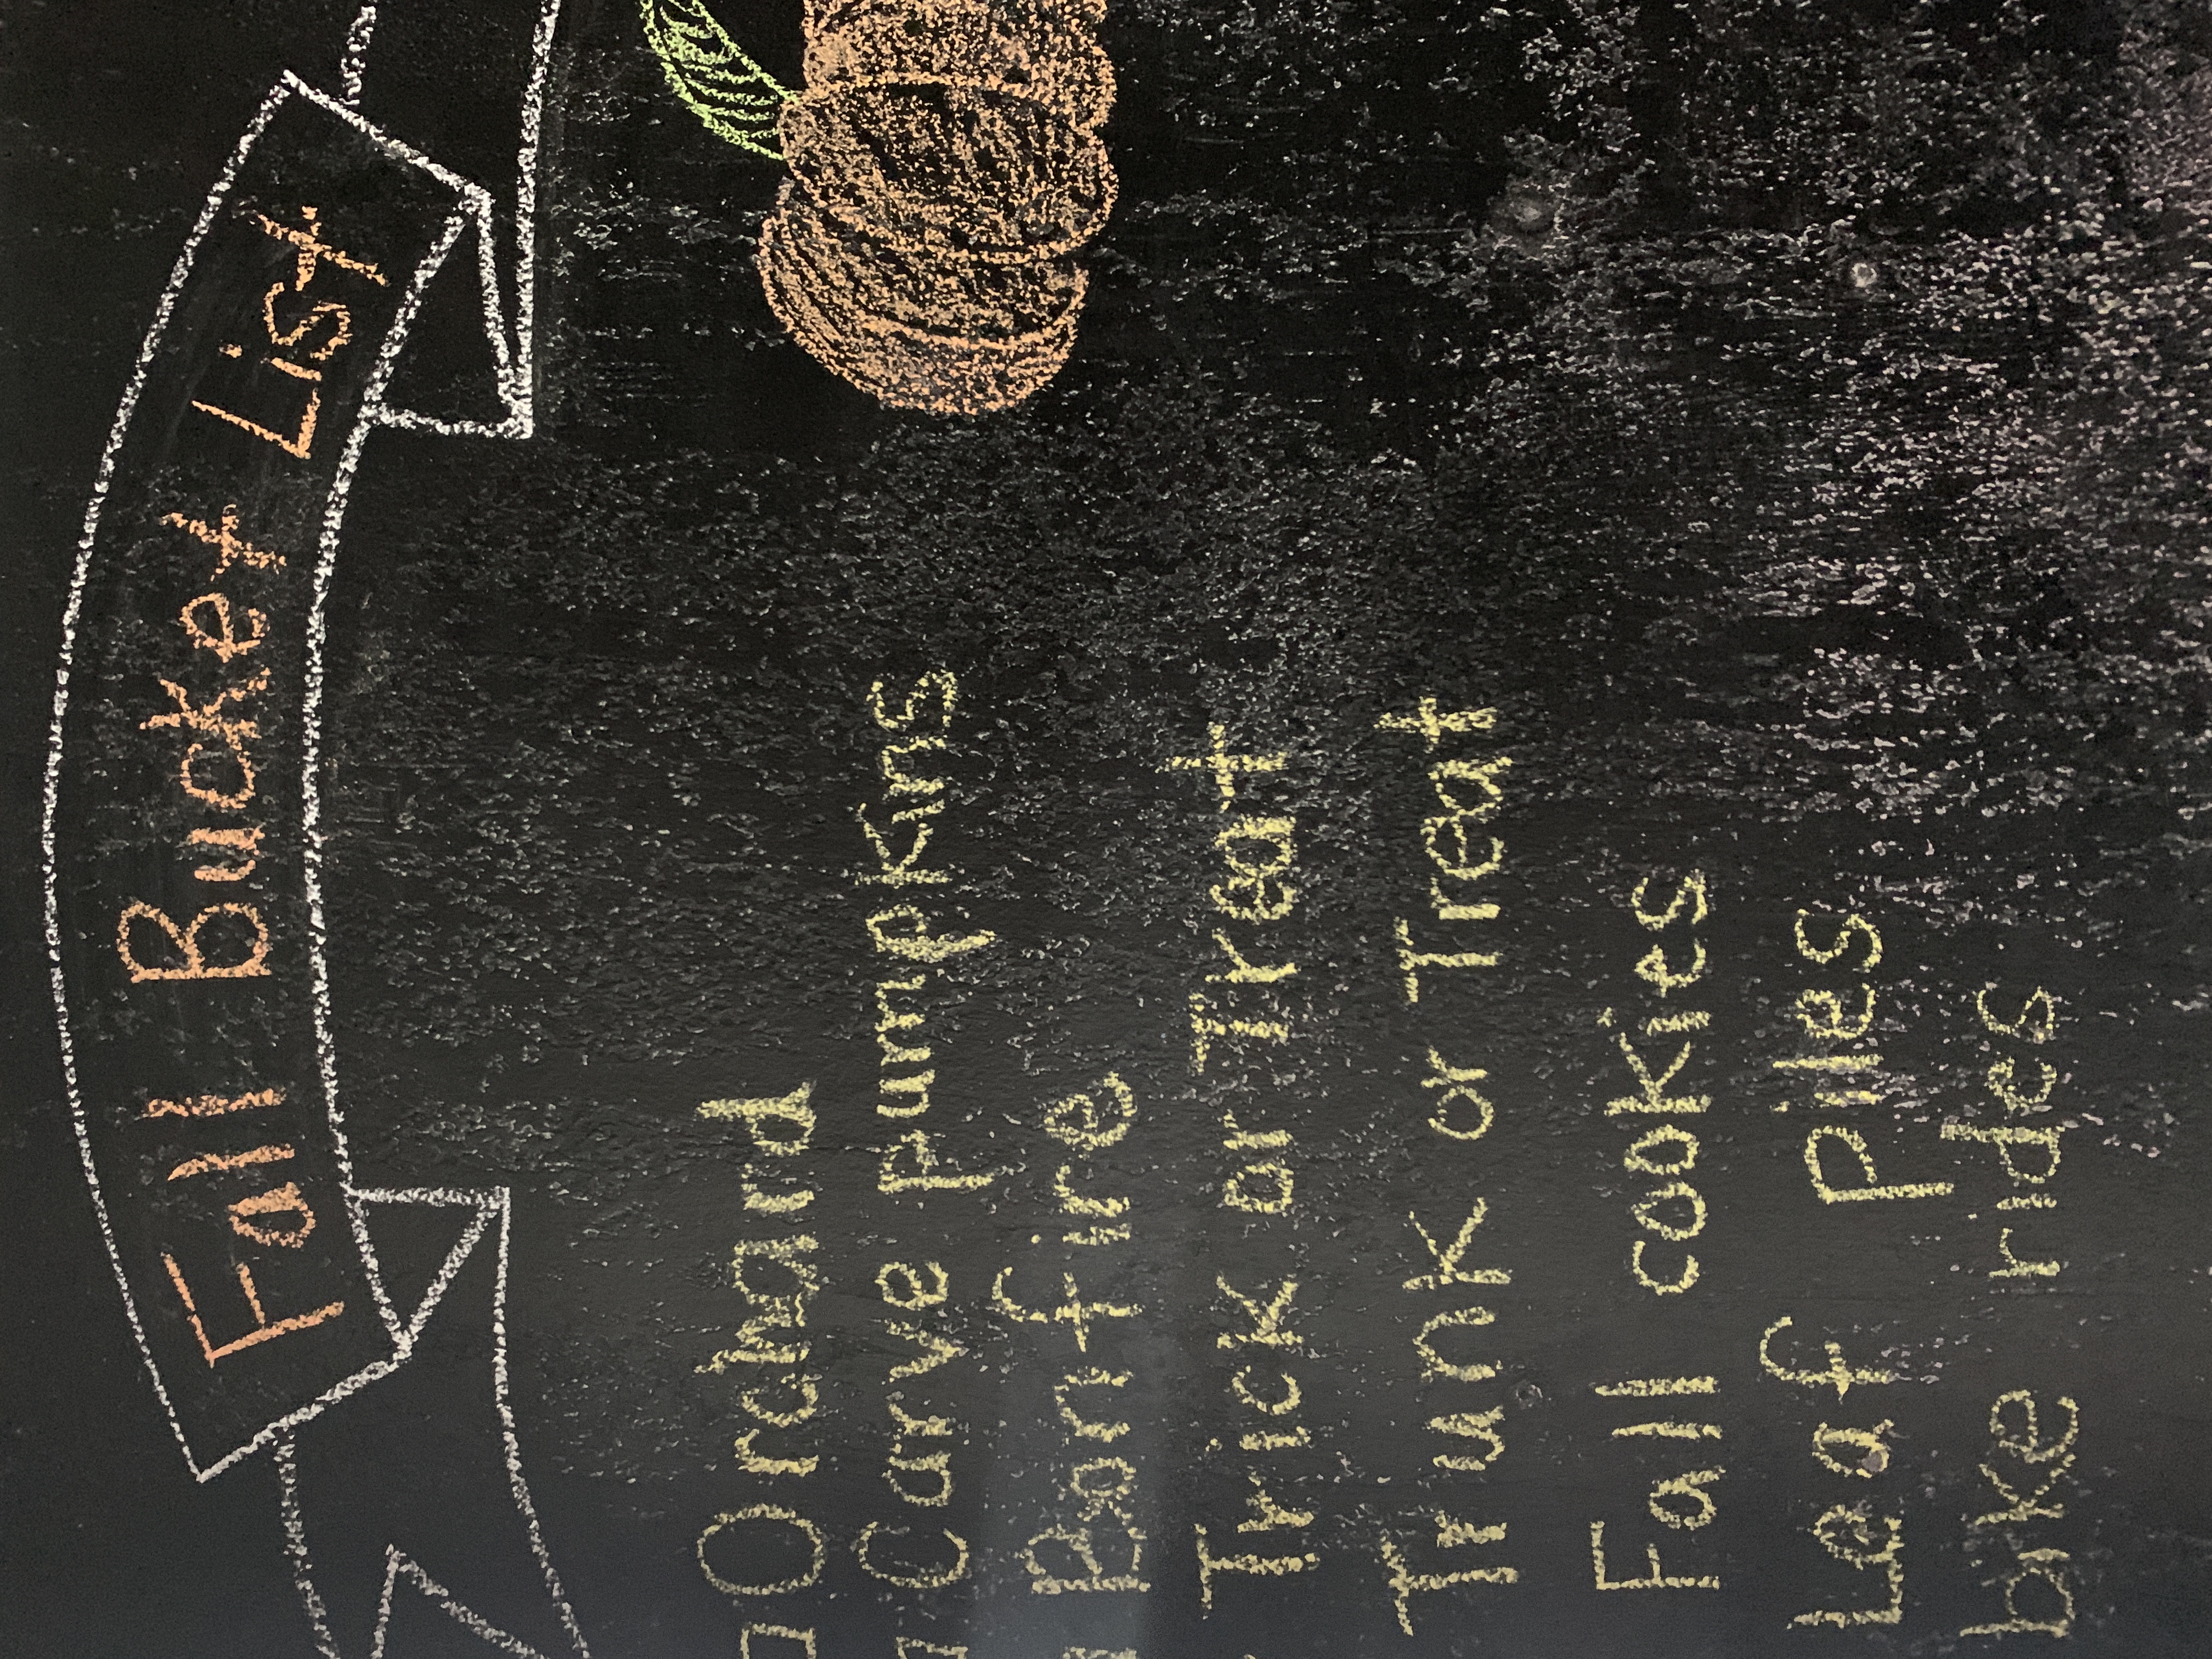 Fall Bucket List
Orchard
Carve Pumpkins
Bonfire
Trick or Treat
Trunk or Treat
Fall cookies
Leaf Piles
bike rides